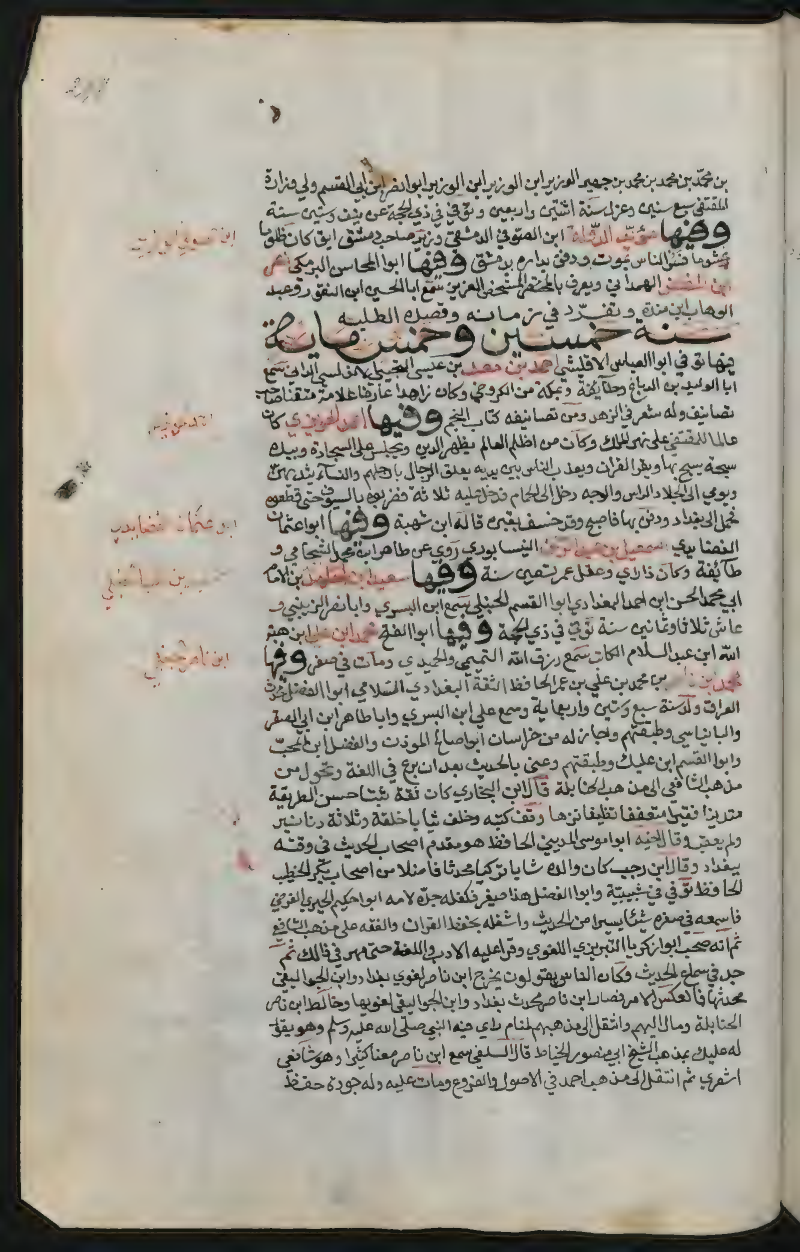 بن محمد بن محمد بن محمد بن جهير الوزير ابن الوزير ابن الوزير ابو انصر ابن ابي القسم ولي وزارة
المقتفي سبع سنين وعزل سنة اثنتين واربعين وتوفي في ذي الحجة عن نيف وستين سنة
وفيها ابن الصوفي الدمشقي وزير صاحب دمشق ابق كان ظلوما
غشوما فسر الناس بموته ودفن بداره بدمشق وفيها ابوا المحاسن البرمكي
الهمداني ويعرف سمع ابا الحسين ابن النقور وعبد
الوهاب ابن مندة وتفرد في زمانه وقصده الطلبه
سنة خمسين وخمس ماية
فيها توفي ابوا العباس الاقليشي احمد بن معد بن عيسى التجيبي الاندلسي الداني سمع
ابا الوليد بن الدباغ وطائفة وبمكة من الكروخي وكان زاهدا عارفا علامة متقنا صاحب
تصانيف وله شعر في الزهد ومن تصانيفه كتاب النجم وفيها احمد الحويزي كان
عاملا للمقتفي على نهر الملك وكان من اظلم العالم يظهر الدين ويجلس على السجادة وبيده
سبحة يسبح بها ويقرا القران ويعذب الناس بين يديه يعلق الرجال بارجلهم والنساء بثديهن
ويومي الى الجلاد الراس والوجه دخل الى الحمام فدخل عليه ثلاثة فضربوه بالسيوف حتى قطعوه
فحمل الى بغداد ودفن بها فاصبح وقد خسف بقبره قاله ابن شهبة وفيها ابوا عثمان
اسمعيل بن عبد الرحمن النيسابوري روى عن طاهر ابن محمد الشحامي و
طائفة وكان ذا راي وعقل عمر تسعين سنة وفيها سعيد ابن احمد بن الامام
ابي محمد الحسن ابن احمد البغدادي ابوا القسم الحنبلي سمع ابن البسري وابا نصر الزينبي و
عاش ثلاثا وثمانين سنة توفي في ذي الحجة وفيها ابوا الفتح محمد ابن علي ابن هبة
الله ابن عبد السلام الكاتب سمع رزق الله التميمي والحميدي ومات في صفر وفيها
محمد بن ناصر بن محمد بن علي بن عمر الحافظ الثقة البغدادي السلامي ابوا الفضل محدث
العراق ولد سنة سبع وستين واربعماية وسمع علي ابن البسري وابا طاهر ابن ابي الصقر
والبانياسي وطبقتهم واجاز له من خراسان ابوا صالح الموذن والفضل ابن المحب
وابوا القسم ابن عليك وطبقتهم وعني بالحديث بعد ان برع في اللغة وتحول من
مذهب الشافعي الى مذهب الحنابلة قال ابن النجاري كان ثقة ثبتا حسن الطريقة
متدينا فقيرا متعففا نظيفا نزها وقف كتبه وخلف ثيابا خلقة وثلاثة دنانير
ولم يعقب وقال فيه ابوا موسى المديني الحافظ هو مقدم اصحاب الحديث في وقته
ببغداد وقال ابن رجب كان والده شابا تركيا محدثا فاضلا من اصحاب الخطيب
الحافظ توفي في شبيبته وابوا الفضل هذا صغير فكفله جده لامه ابوا حكيم الخبري الفرضي
فاسمعه في صغره شيئا يسيرا من الحديث واشغله بحفظ القران والفقه على مذهب الشافعي
ثم انه صحب ابوا زكريا التبريزي اللغوي وقرا عليه الادب واللغة حتى مهر في ذالك ثم
جد في سماع الحديث وكان الناس يقولون يخرج ابن ناصر لغوي بغداد وابن الجواليقي
محدثها فانعكس الامر فصار ابن ناصر محدث بغداد وابن الجواليقي لغويها وخالط ابن ناصر
الحنابلة ومال اليهم وانتقل الى مذهبهم لمنام راي فيه النبي صلى الله عليه وسلم وهو يقول
له عليك بمذهب الشيخ ابي منصور الخياط قال السلفي سمع ابن ناصر معنا كثيرا وهو شافعي
اشعري ثم انتقل الى مذهب احمد في الاصول والفروع ومات عليه وله جودة حفظ
ابن ناصر الحنبلي